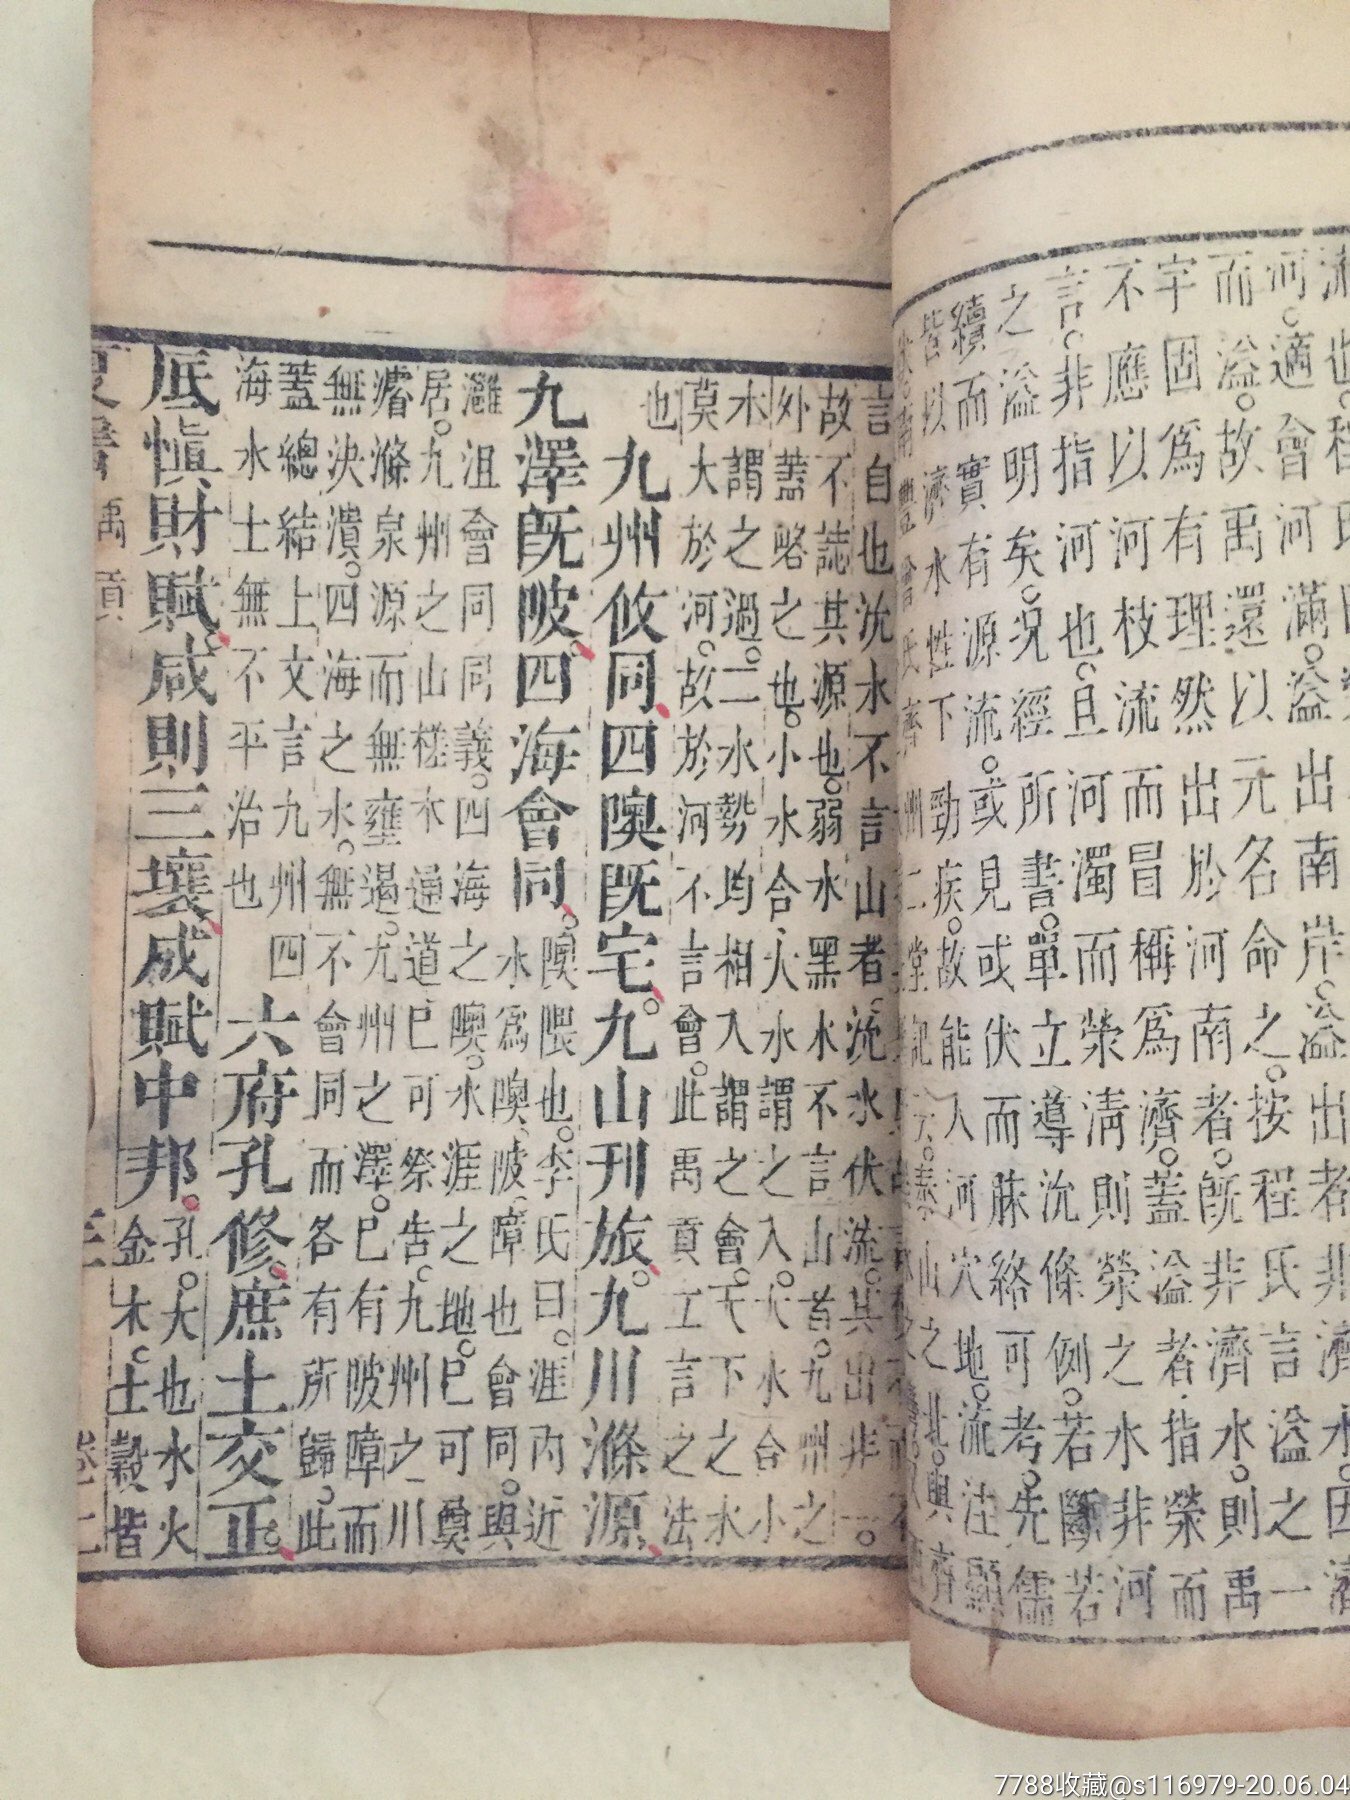 河。適會河滿。溢出南岸。溢出者非濟水因濟
而溢。故禹還以元名命之。按程氏言溢之一
字固爲有理然出於河南者。旣非濟水。則禹
不應以河枝流而冒稱爲濟。蓋溢者指滎而
言。非指河也。且河濁而滎淸則滎之水非河
之溢明矣。況經所書。單立導沇條例。若斷若
續而實有源流。或見或伏而脉絡可考。先儒
皆以濟水性下勁疾。故能入河穴地。流注顯
南豐曾氏齊州二堂記云。泰山之北。與齊
言自也沇水不言山者。沇水伏流。其出非一。
故不誌其源也。弱水黑水不言山首。九州之
外蓋略之也。小水合大水謂之入。大水合小
水謂之過。二水勢均相入謂之會。天下之水
莫大於河。故於河不言會。此禹貢立言之法
也 九州攸同。四隩旣宅。九山刊旅。九川滌源。
九澤旣陂。四海會同。
隩隈也。李氏曰。涯內近
水爲隩。陂。障也會同。與
灉沮會同同義。四海之隩。水涯之地。已可奠
居。九州之山槎木通道已可祭告。九州之川
濬滌泉源而無壅遏。九州之澤。已有陂障而
無決潰。四海之水。無不會同而各有所歸。此
蓋總結上文言九州四
海水土無不平治也
六府孔修。庶土交正。
厎愼財賦。咸則三壤。成賦中邦。
孔。大也水火
金木。土穀皆
夏書 禹貢 三 卷二
7788收藏@s116979-20.06.04